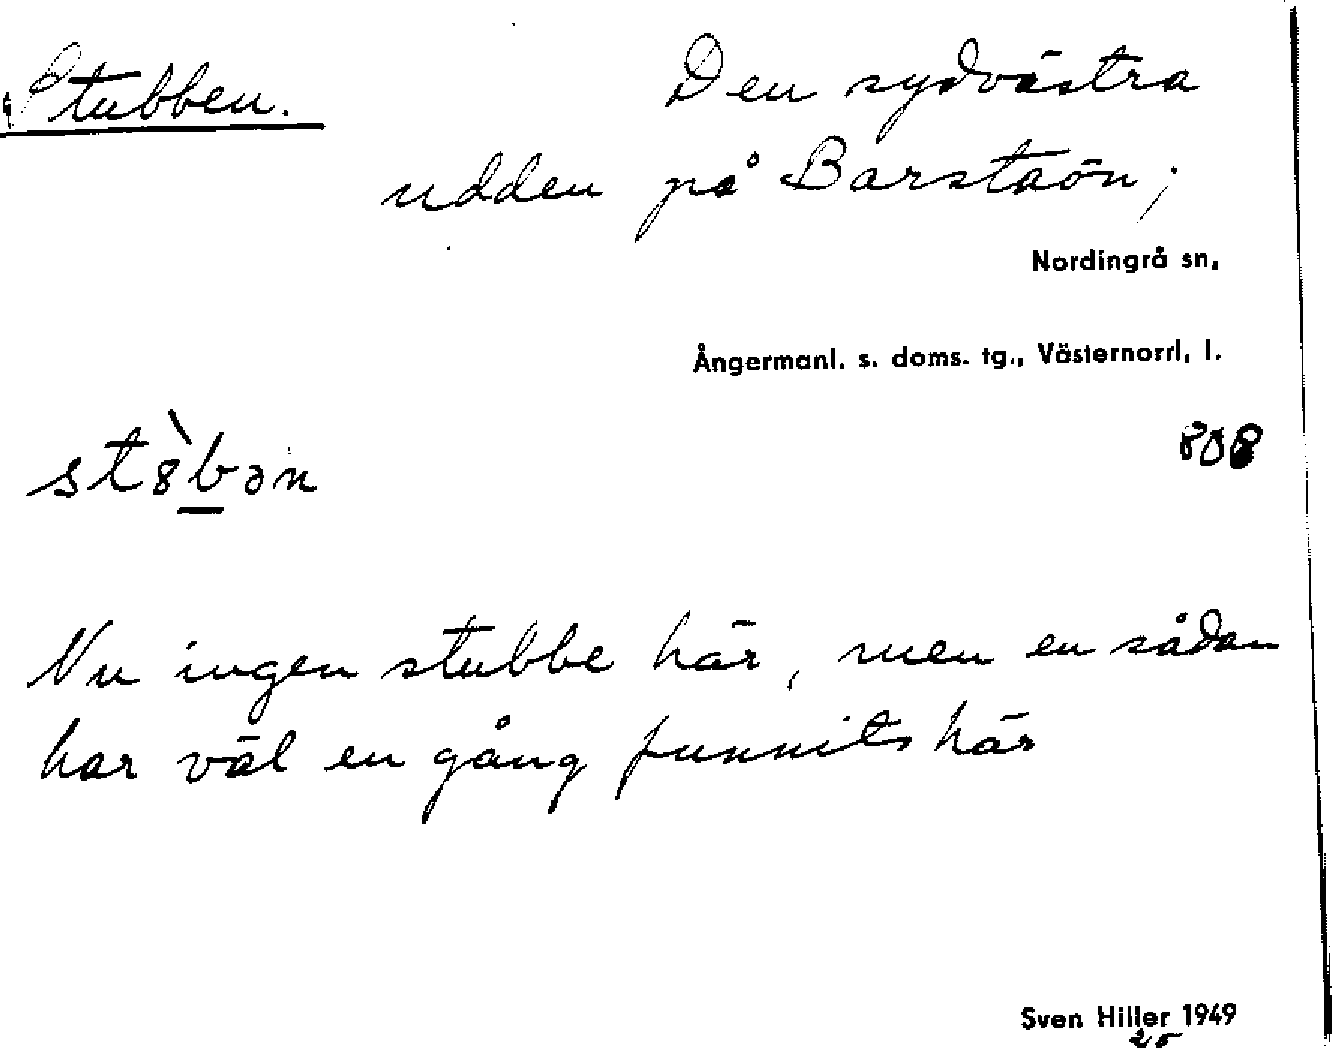 Stubben. Den sydvästra
udden på Barstaön;
Nordingrå sn,
Ångermanl. s. doms. tg., Västernorrl. l.
808
st8̀bən
Nu ingen stubbe här, men en sådan
har väl en gång funnits här
Sven Hiller 1949
25